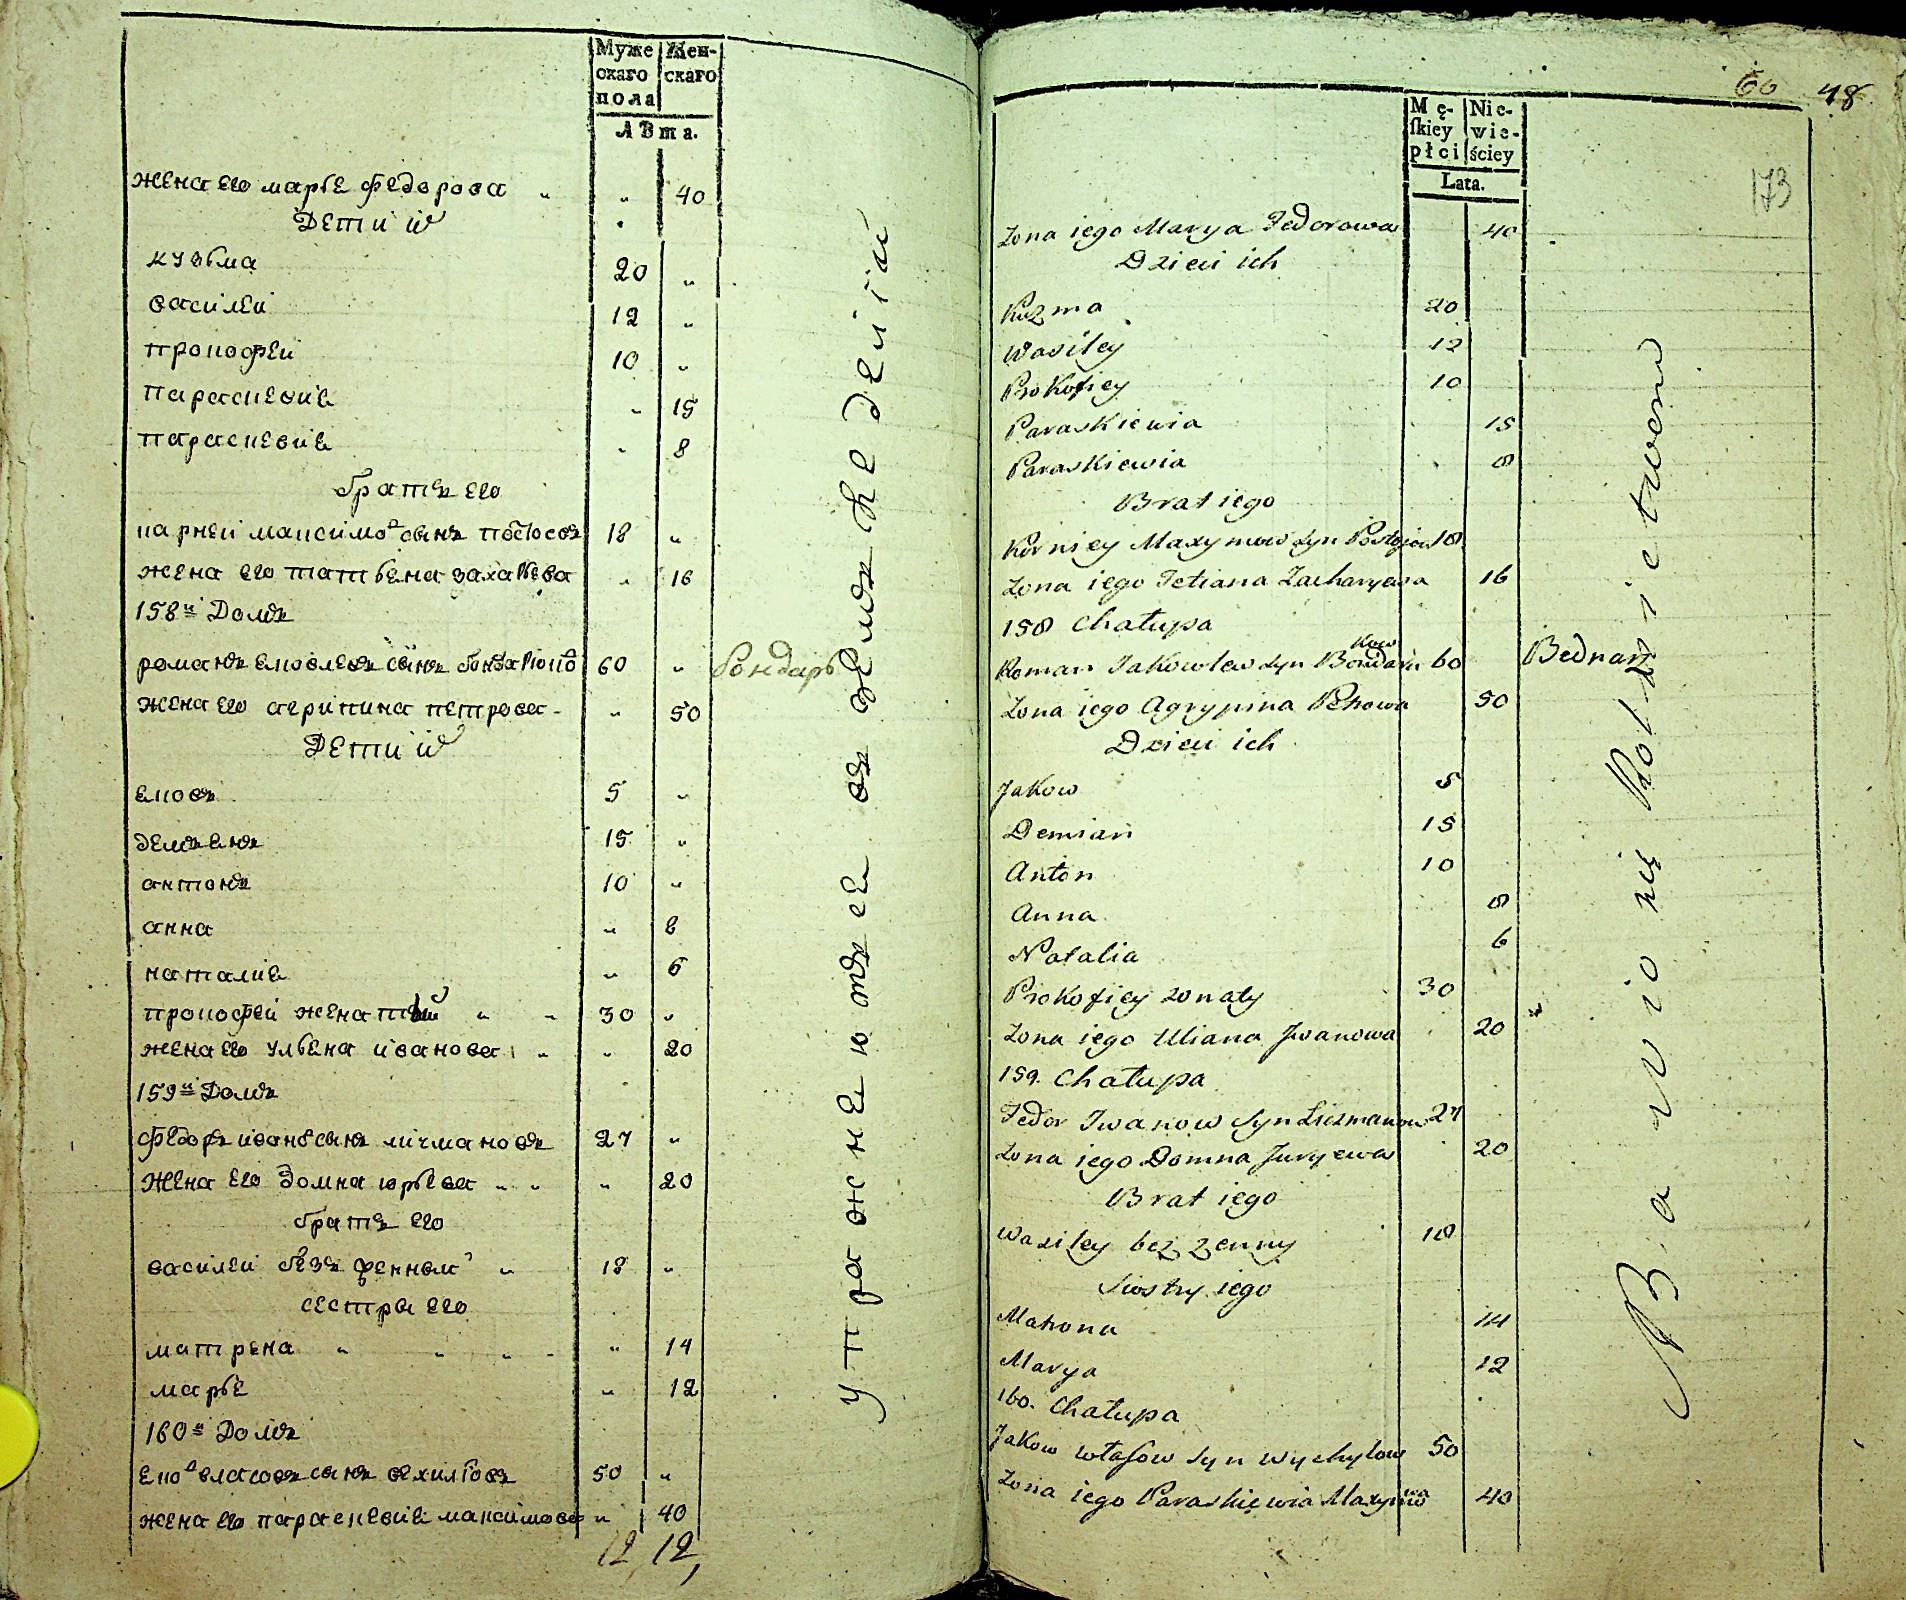 Муже Жен-
скаго скаго
пола
ЛѢта.
жена его марья федорова „ „ 40
Дети их
кузьма 20 „
василей 12 „
прокофей 10 „
парасковия „ 15
парасковия „ 8
братъ его
карней максимов сынъ 18 „
жена его татьяна захарьева „ 16
158й Домъ
романъ яковлевъ сынъ 60 „ бондарь
жена его агрипина петрова - „ 50
Дети их
яковъ 5 „
демьянъ 15 „
антонъ 10 „
анна „ 8
наталия „ 6
прокофей женатый „ - 30 „
жена его ульяна иванова „ „ 20
159й Домъ
федоръ иванов сынъ личмановъ 27 „
жена его домна юрьева „ „ „ 20
братъ его
василей безъ женной „ 18 „
сестра его
матрена „ „ „ - „ 14
марья „ 12
160й Домъ
яков власовъ сынъ 50 „
жена его парасковия максимова „ 40
12, 12,
упражняютъся въ земле
60 48
173
Mę- Nie-
ſkiey wie-
płci ściey
Lata.
Zona iego Marya Fedorowa 40
Dzieci ich
Kuzma 20
Wasiley 12
Prokofiey 10
Paraskiewia 15
Paraskiewia 8
Brat iego
Korniey Maxymow syn 18
Zona iego Tetiana Zacharyewa 16
158 Chałupa
Roman Jakowlew syn Bondarukow 60 Bednarz
Zona iego Agrypina Petrowa 50
Dzieci ich
Jakow 5
Demian 15
Anton 10
Anna 8
Natalia 6
Prokofiey zonaty 30
Zona iego Uliana Jwanowa 20
159. Chałupa
Fedor Iwanow syn Liczmanow 27
Zona iego Domna Juryewa 20
Brat iego
Wasiley bez zenny 18
Siostry iego
Matrona 14
Marya 12
160. Chałupa
Jakow Własow syn Wychylow 50
Zona iego Paraskiewia Maxymowa 40
Bawio się Rolnictwem